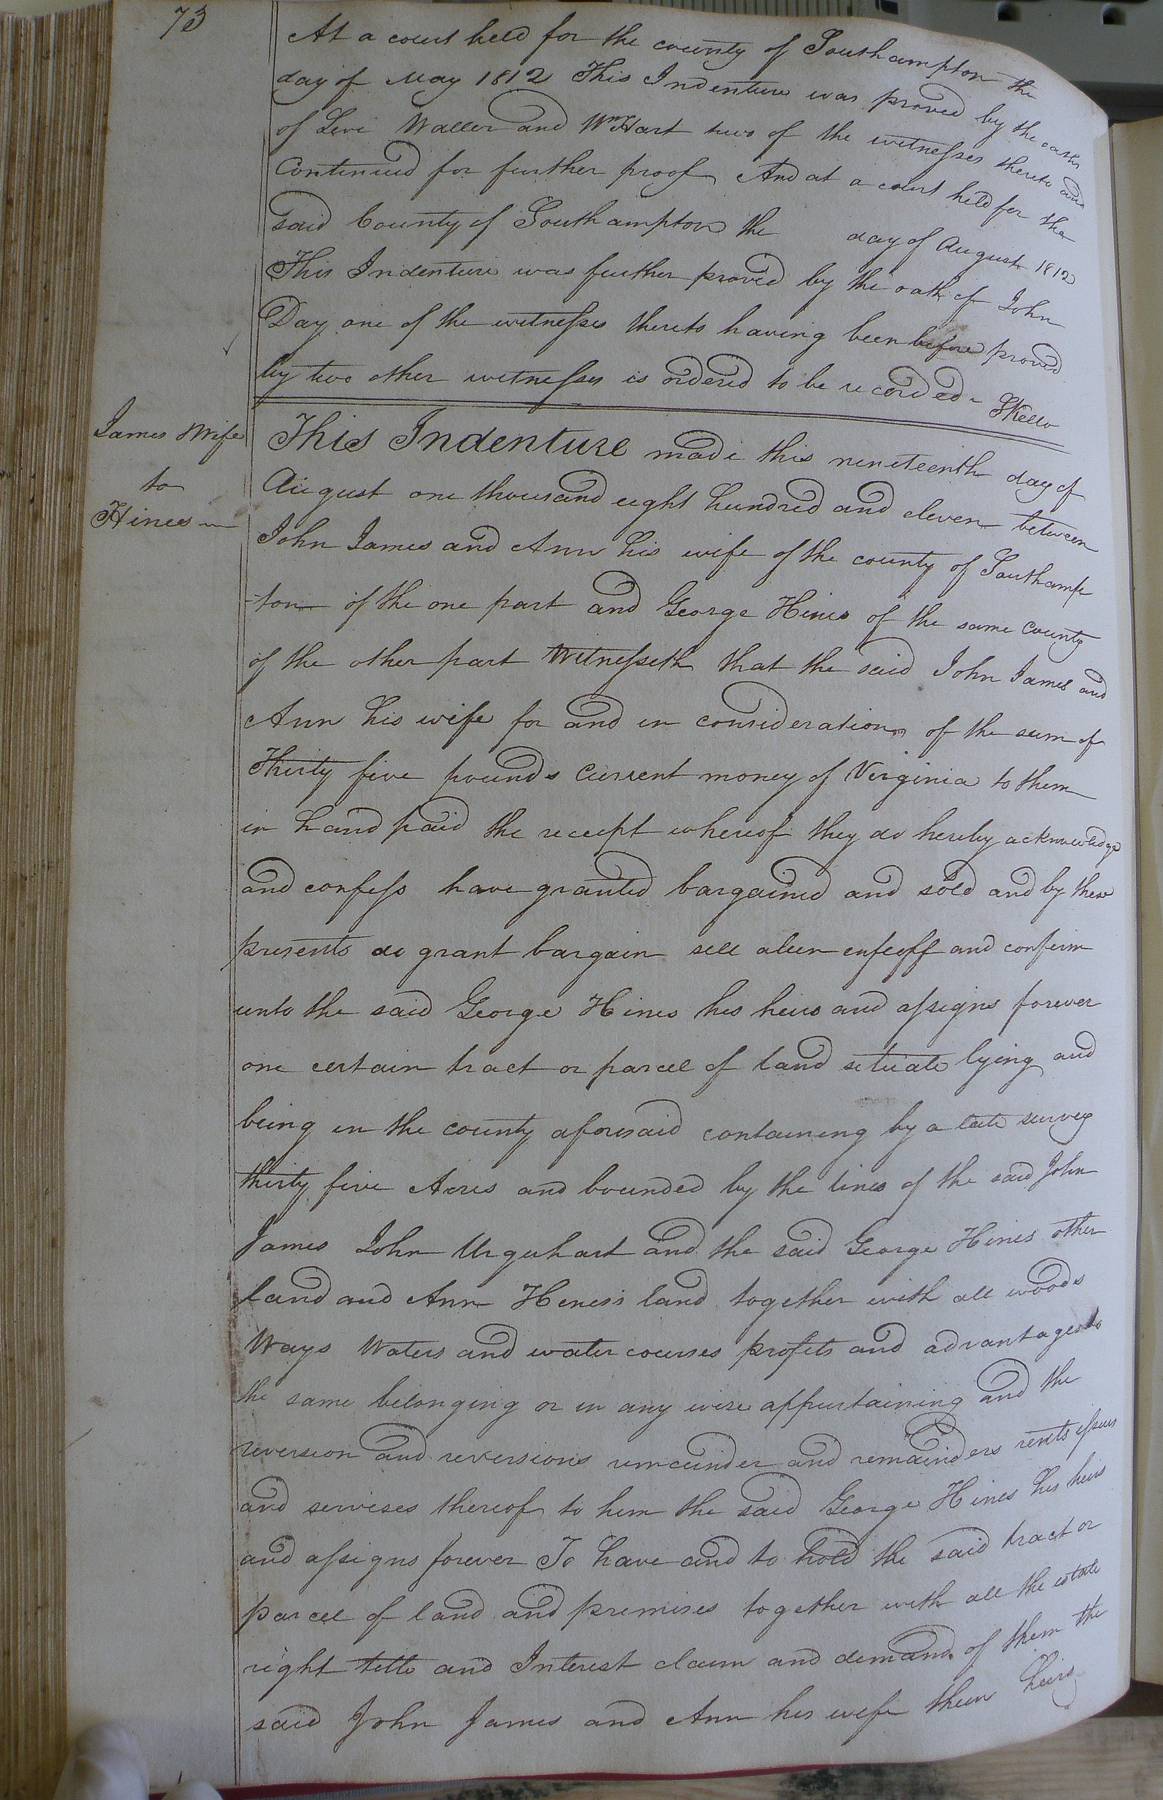 73
At a court held for the county of Southampton the
day of May 1812 This Indenture was proved by the oaths
of Levi Waller and Wm Hart two of the witnesses thereto and
Continued for further proof And at a court held for the
said County of Southampton the day of August 1812
This Indenture was further proved by the oath of John
Day one of the witnesses thereto having been before proved
by two other witnesses is ordered to be recorded
James & Wife
to
Hines
This Indenture made this nineteenth day of
August one thousand eight hundred and eleven between
John James and Ann his wife of the county of Southamp
-ton of the one part and George Hines of the same County
of the other part Witnesseth that the said John James and
Ann his wife for and in consideration of the sum of
Thirty five pounds Current money of Virginia to them
in hand paid the receipt whereof they do hereby acknowledge
and confess have granted bargained and sold and by these
presents do grant bargain sell alien enfeoff and confirm
unto the said George Hines his heirs and assigns forever
one certain tract or parcel of land situate lying and
being in the county aforesaid containing by a late survey
thirty five Acres and bounded by the lines of the said John
James John Urquhart and the said George Hines other
land and Ann Heness land together with all woods
Ways Waters and water courses profits and advantages to
the same belonging or in any wise appurtaining and the
reversion and reversions remainder and remainders rents issues
and servises thereof to him the said George Hines his heirs
and assigns forever To have and to hold the said tract or
parcel of land and premises together with all the estate
right title and Interest claim and demand of them the
said John James and Ann his wife their heirs